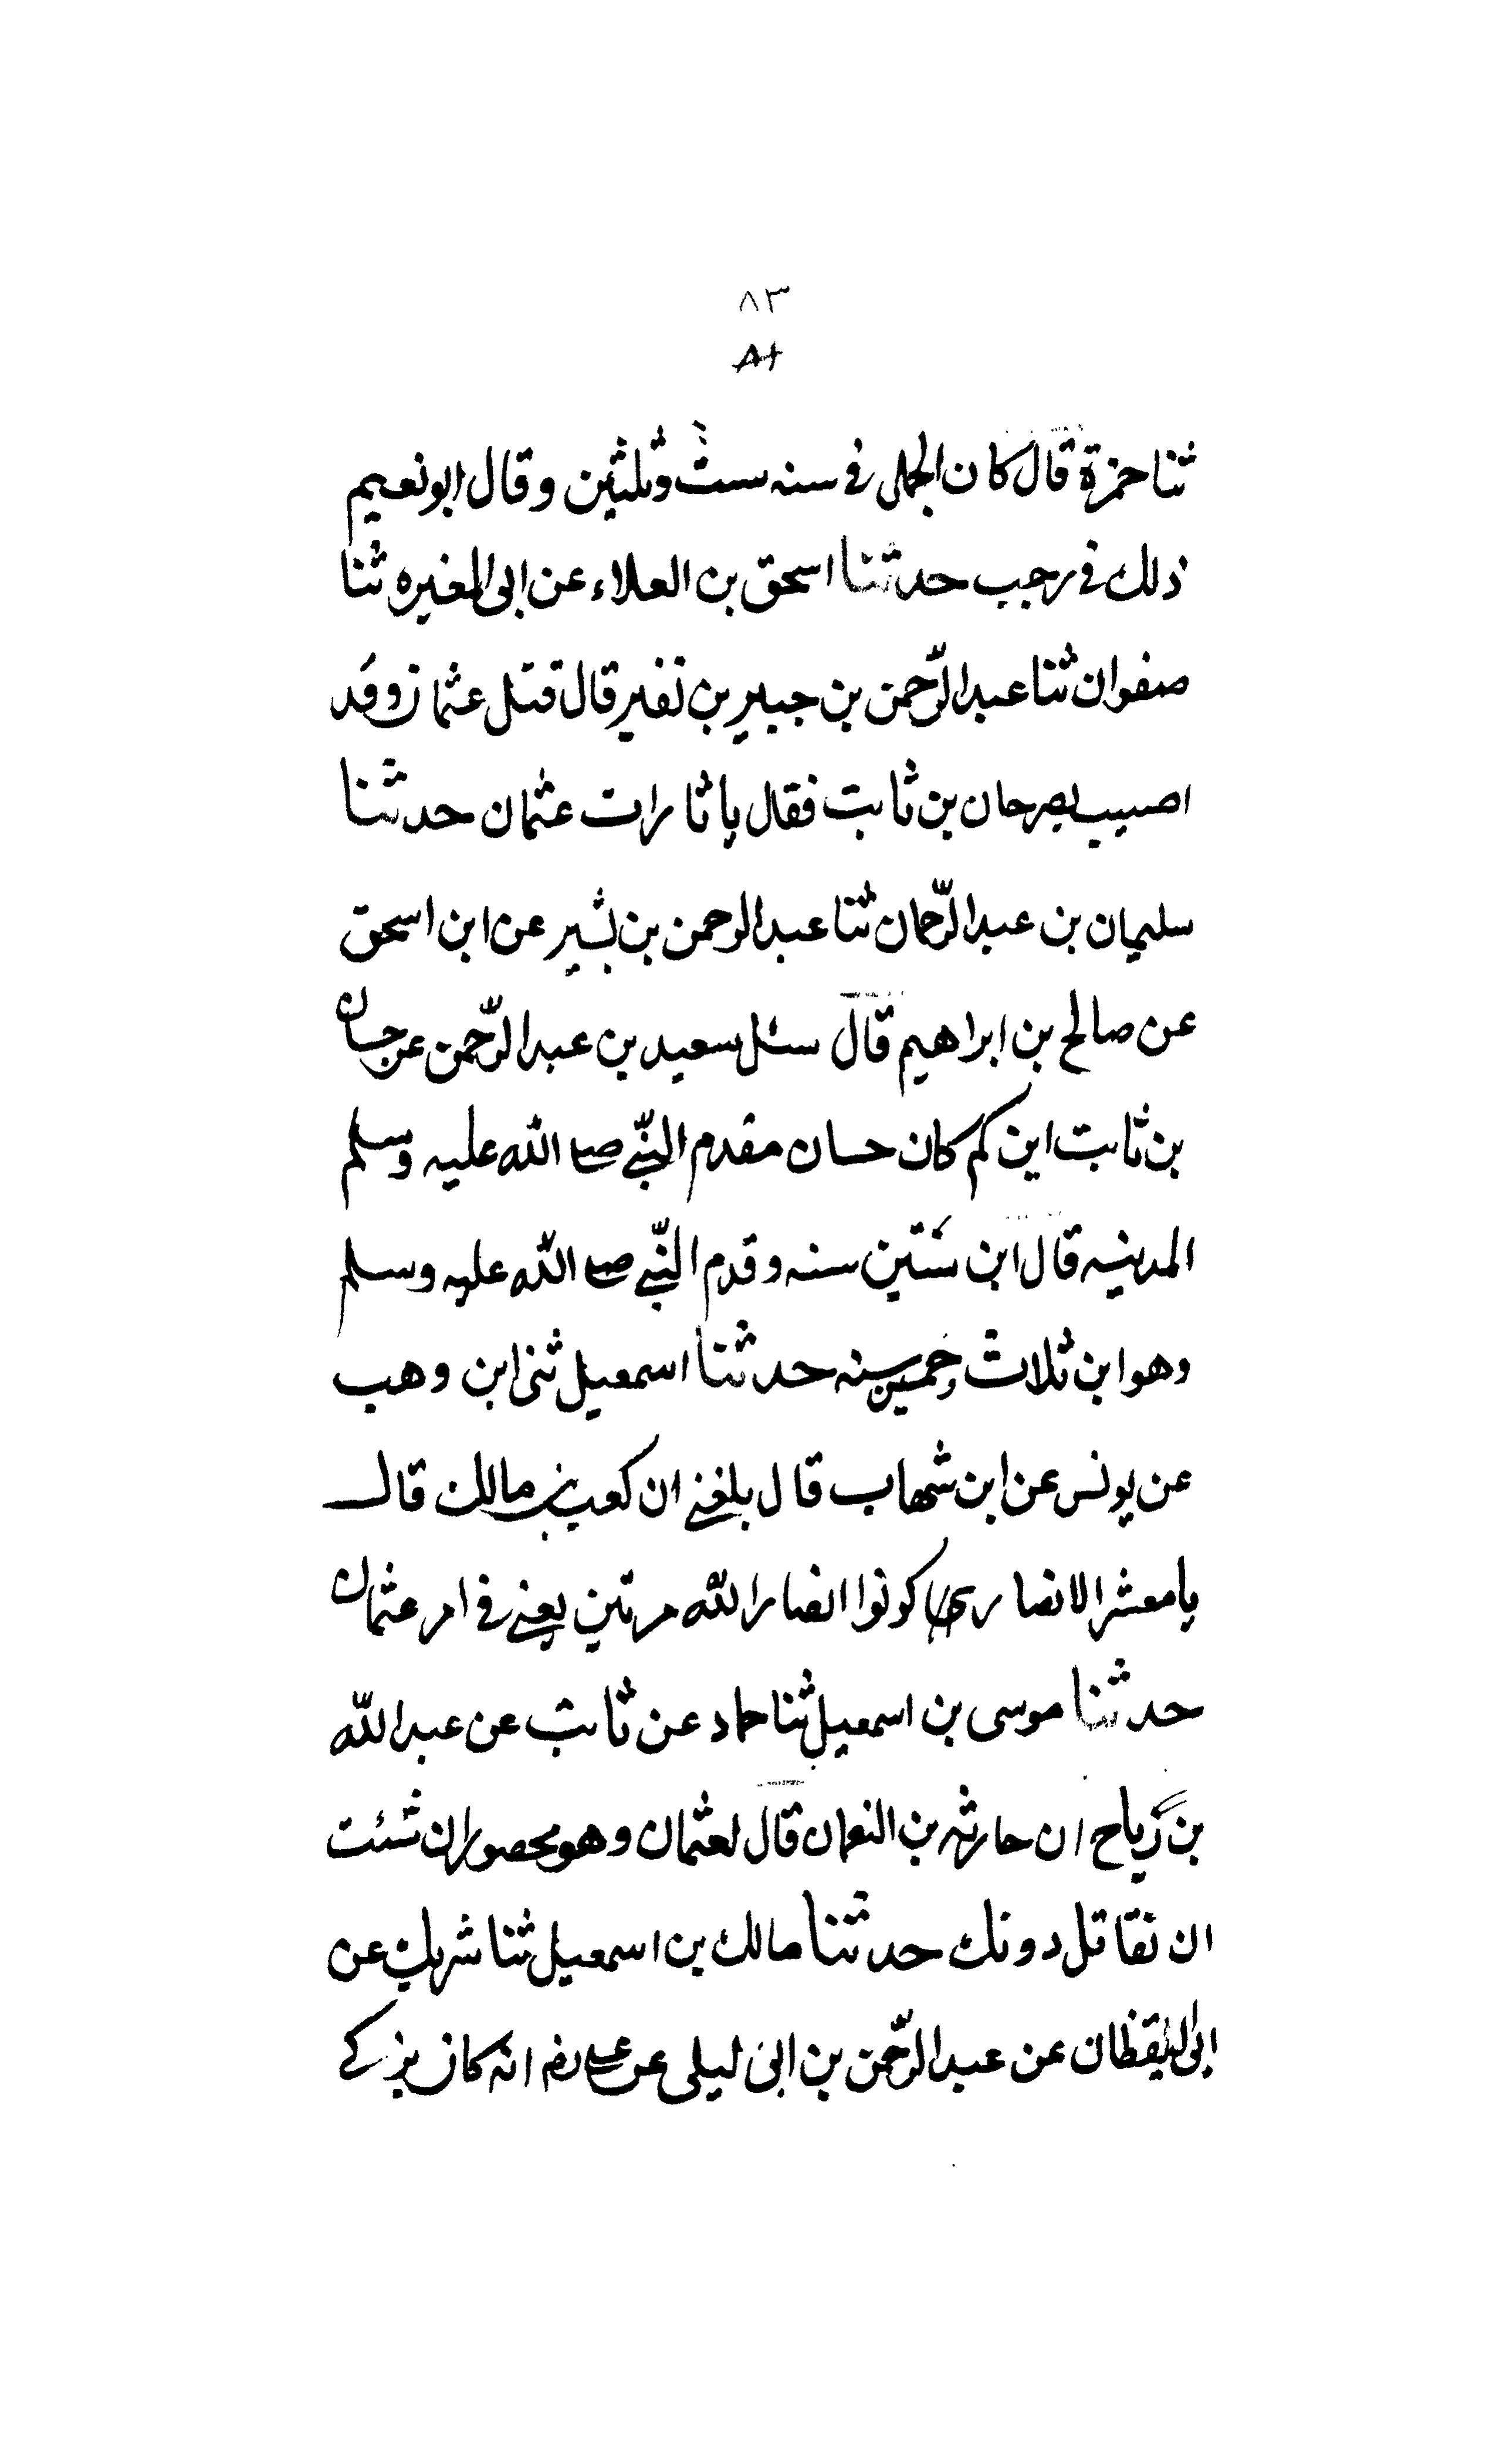 ٨٣
ثنا حمزة قال كان الجملى فى سنه ست وثلثين وقال ابو نعيم
ذلك فى رجب حدثنا اسحق بن العلاء عن ابى المغيره ثنا
صفوان ثنا عبد الرّحمن بن جبير بن نفير قال قتل عثمان وقد
اصيب بصر حان بن ثابت فقال يا ثارات عثمان حدثنا
سليمان بن عبد الرّحمان ثنا عبد الرحمن بن بشير عن ابن اسحق
عن صالح بن ابراهيم قال سئل سعيد بن عبد الرّحمن عن حسان
بن ثابت ابن كم كان حسان مقدم النّبى صلى الله عليه وسلم
المدينه قال ابن ستين سنه وقدم النّبى صلى الله عليه وسلم
وهو ابن ثلاث وخمسين سنه حدثنا اسمعيل ثنى ابن وهب
عن يونس عن ابن شهاب قال بلغنى ان كعب بن مالك قال
يا معشر الانصار كونوا انصار الله مرتين يعنى فى امر عثمان
حدثنا موسى بن اسمعيل ثنا حماد عن ثابت عن عبد الله
بن رباح ان حارثه بن النعمان قال لعثمان وهو محصور ان شئت
ان نقاتل دونك حدثنا مالك بن اسمعيل ثنا شريك عن
ابى اليقظان عن عبد الرّحمن بن ابى ليلى عن على رضـ انه كان يزكى